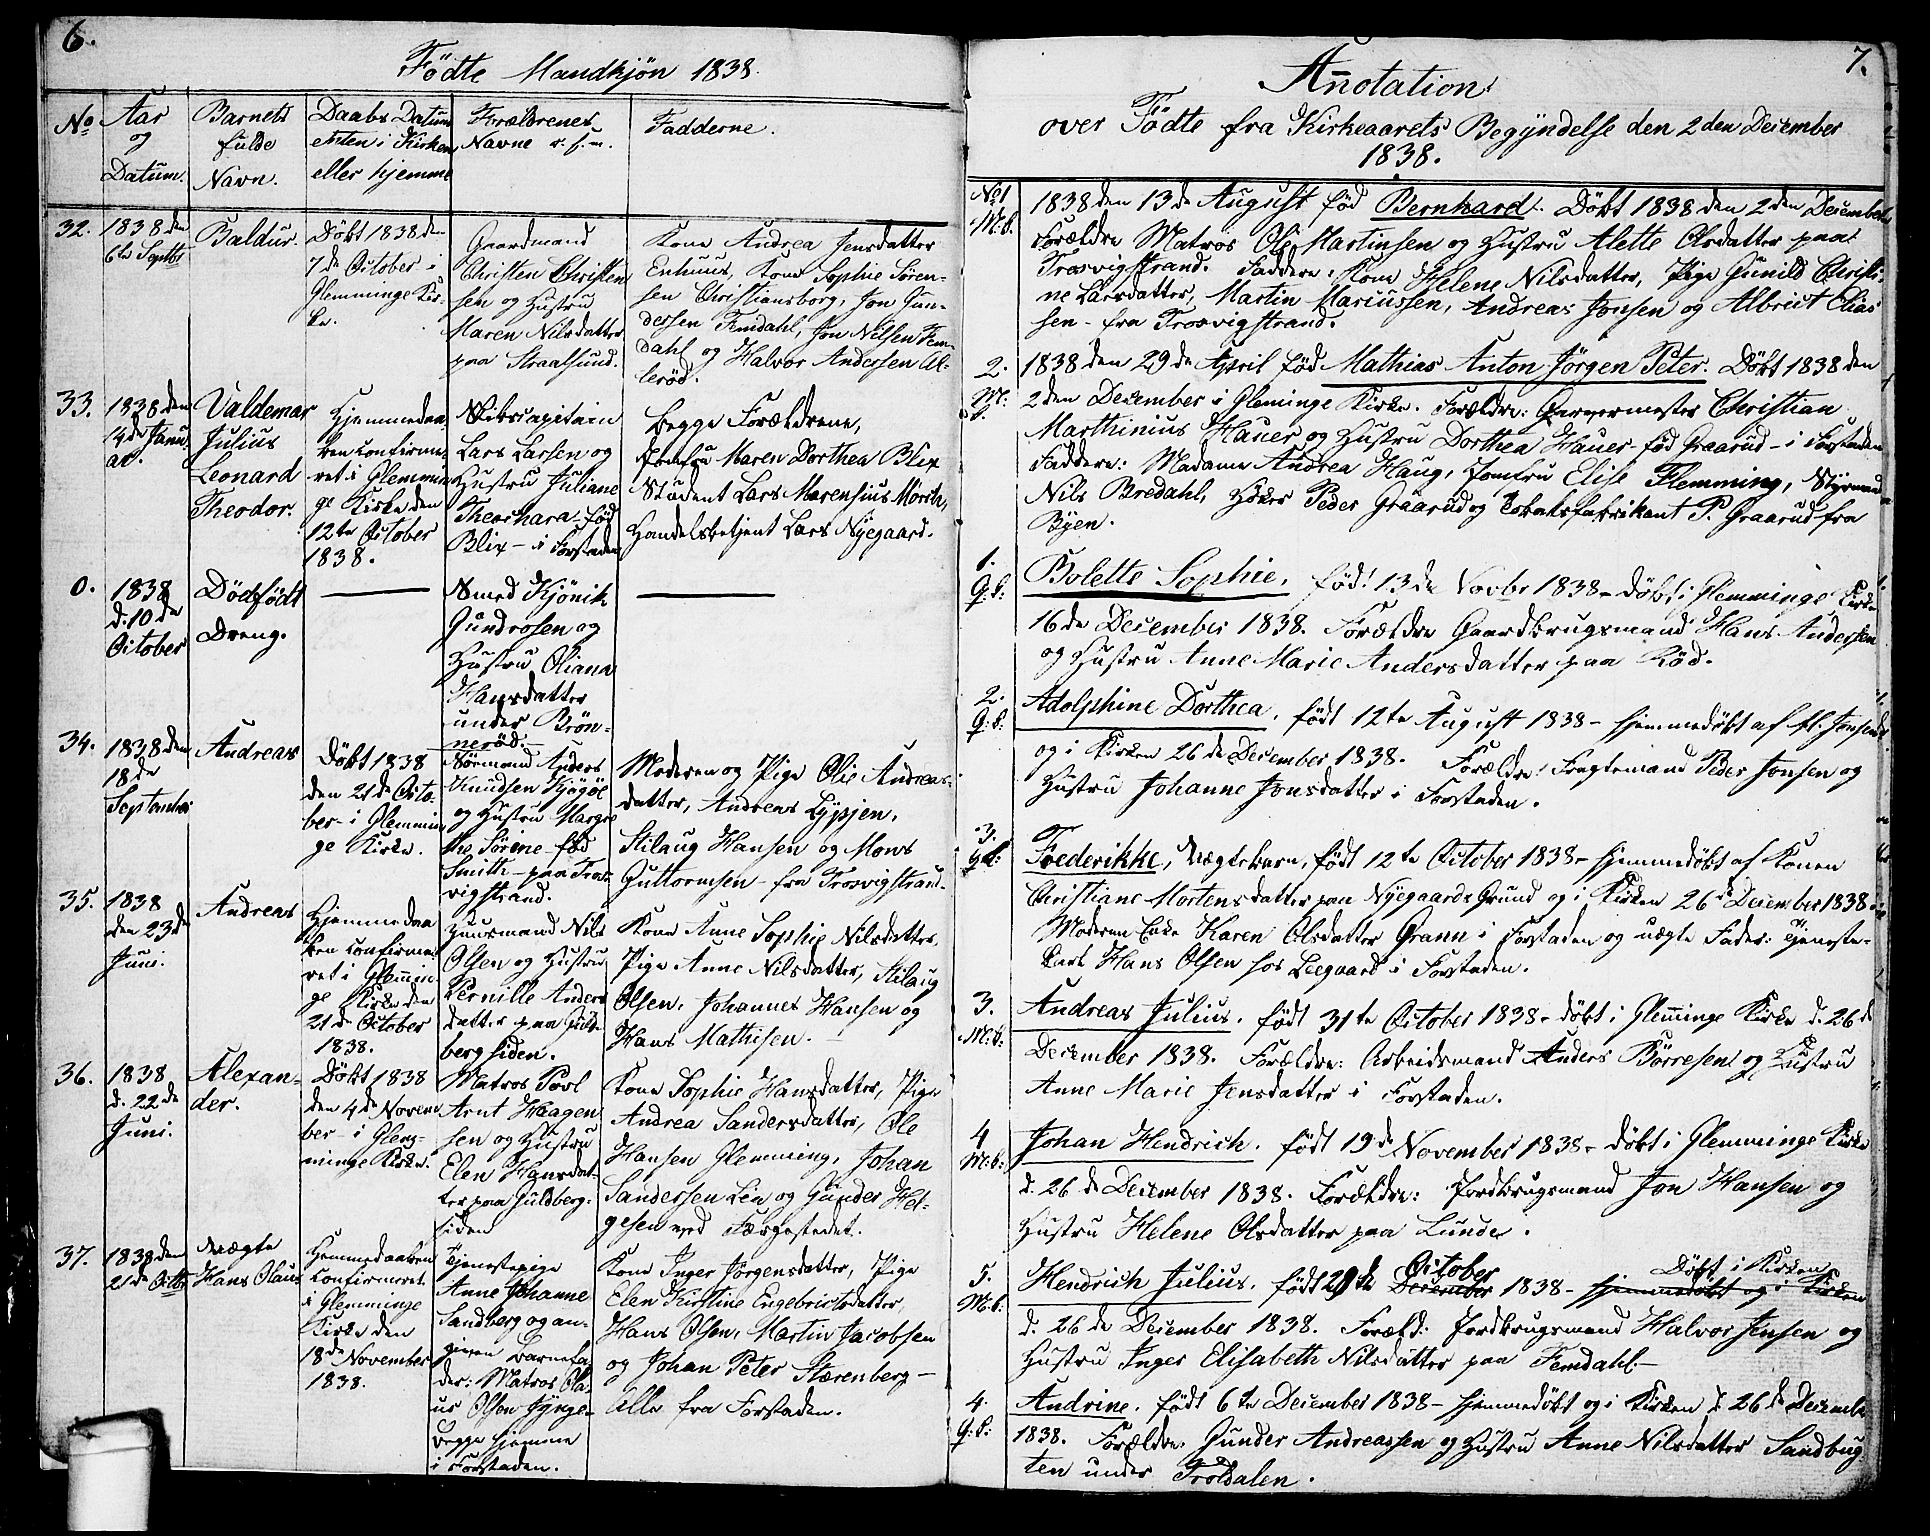 6.
Födte Mandkjön 1838.
No
Aar
og
Datum.
Barnets
fulde
Navn.
Daabs Datum
enten i Kirken
eller hjemme
Forældrenes
Navne v. s. m.
Fadderne.
32.
1838 den
6te Septbr
Baldur.
Döbt 1838 den
7de October i
Glemminge Kir-
ke.
Gaardmand
Christen Christen
sen og Hustru
Maren Nilsdatter
paa Straalsund.
Kone Andrea Jensdatter
Enhuus, Kone Sophie Sören-
sen Christiansborg, Jon Gun-
dersen Femdahl, Jon Nilsen Fem-
dahl og Halvor Andersen Al-
leröd.
33.
1838 den
14de Janu
ar.
Valdemar
Julius
Leonard
Theodor.
Hjemmedaa
ben Confirme
ret i Glemmin
ge Kirke den
12te October
1838.
Skibscapitain
Lars Larsen og
Hustru Juliane
Theochara född
Blix - i Forstaden
Begge Forældrene,
Jomfru Maren Dorthea Blix
Student Lars Marensius
Handelsbetjent Lars Nygaard.
0.
1838
d: 10de
October
Dödfödt
Dreng.
Smed Kjönik
Gundrosen og
Hustru Oliana
Hansdatter
under Brön-
neröd.
34.
1838 den
18de
September
Andreas
Döbt 1838
den 21de Octo-
ber - i Glemmin
ge Kirke.
Sörmand Anders
Knudsen Kjögöe
og Hustru Margre
the Sörine född
Smith - paa Tros-
vigstrand.
Moderen og Pige Olie Andreas-
datter, Andreas
Stilaug Hansen og Mons
Guttormsen - fra Trosvigstran-
35.
1838
den 23de
Juni.
Andreas
Hjemmedaa
ben Confirme
ret i Glemin
ge Kirke den
21de October
1838.
Huusmand Nils
Olsen og Hustru
Pernille Anders
datter paa Guld-
bergsiden.
Kone Anne Sophie Nilsdatter,
Pige Anne Nilsdatter, Stilaug
Olsen, Johannes Hansen og
Hans Mathisen.
36.
1838
d. 22de
Juni.
Alexan-
der.
Döbt 1838
den 4de Novem
ber - i Glem-
minge Kirke.
Matros Povl
Arnt Haagen
sen og Hustru
Elen Hansdat-
ter paa Guldberg-
siden
Kone Sophie Hansdatter, Pige
Andrea Sandersdatter, Ole
Hansen Glemming, Johan
Sandersen Lie og Gunder Hel-
gesen ved Færgestedet.
37.
1838 den
21de Octbr
Uægte
Hans Olaus
Hemmedaaben
Confirmeret
i Glemminge
Kirke den
18de November
1838.
Tjenestepige
Anne Johanne
Sandberg og an-
given Barnefa-
der: Matros Ola-
us Olsen
begge hjemme
i Forstaden.
Kone Inger Jörgensdatter, Pige
Elen Kirstine Engebrictsdatter,
Hans Olsen, Martin Jacobsen
og Johan Peter Stærenberg -
Alle fra Forstaden.
7.
Anotation
over Födte fra Kirkeaarets Begyndelse den 2den December
1838.
No 1
M: k.
1838 den 13de August född Bernhard. Döbt 1838 den 2den December
Forældre Matros Ole Martinsen og Hustru Alette Olsdatter paa
Trosvigstrand. Faddere: Kone Helene Nilsdatter, Pige Gunild Christi-
ne Larsdatter, Martin Mariussen, Andreas Jonsen og Albrict Elias
sen - fra Trosvigstrand.
2.
M:
k.
1838 den 29de April född Mathias Anton Jörgen Peter. Döbt 1838 den
2den December i Gleminge Kirke. Forældre: Garvermester Christian
Marthinius Hauer og Hustru Dorthea Hauer - född Graarud - i Forstaden
Faddere: Madame Andrea Haug, Jomfru Elise Flemming, Styrmand
Nils Bredahl, Peder Graarud og Tobaksfabrikant P. Graarud fra
Byen.
1.
Q: k:
Bolette Sophie, född 13de Novbr 1838 - döbt i Glemminge Kirke
16de December 1838. Forældre Gaardbrugsmand Hans Andersen
og Hustru Anne Marie Andersdatter paa Röd.
2.
Q: k.
Adolphine Dorthea. födt 12te August 1838 - hjemmedöbt af Jonsen
og i Kirken 26de December 1838. Forældre: Fragtemand Peder Jonsen og
Hustru Johanne Jonsdatter i Forstaden.
3.
Q k:
Frederikke, Uægtebarn, födt 12te October 1838 - hjemmedöbt af Konen
Christiane Mortensdatter paa Nygaards Grund og i Kirken 26de December 1838 -
Moderen Enke Karen Olsdatter Grann i Forstaden og uægte Fader: Tjeneste-
karl Hans Olsen hos Leegaard i Forstaden.
3.
M: k:
Andreas Julius. födt 31te October 1838 - döbt i Gleminge Kirke d. 26de
December 1838. Forældre: Arbeidsmand Anders Börresen og Hustru
Anne Marie Jensdatter i Forstaden.
4
M: k:
Johan Hendrich. födt 19de November 1838 - döbt i Glemminge Kirke
d. 26de December 1838. Forældre: Jordbrugsmand Jon Hansen og
Hustru Helene Olsdatter paa Lunde.
5.
M: k.
Hendrich Julius. födt 29de December October 1838 - hjemmedöbt og i Kirken Döbt i Kirken
d. 26de December 1838. Foræld: Jordbrugsmand Halvor Jensen og
Hustru Inger Elisabeth Nilsdatter paa Femdahl -
4.
Q: k:
Andrine. födt 6te December 1838 - hjemmedöbt og i Kirken d 26de Decembe
1838. Forældre. Gunder Andreassen og Hustru Anne Nilsdatter Sandbug
ten under Troldalen.